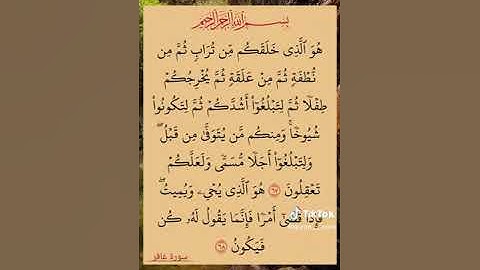 بسم الله الرحمن الرحيم
هُوَ ٱلَّذِى خَلَقَكُم مِّن تُرَابٍ ثُمَّ مِن
نُّطْفَةٍ ثُمَّ مِنْ عَلَقَةٍ ثُمَّ يُخْرِجُكُمْ
طِفْلًا ثُمَّ لِتَبْلُغُوٓا۟ أَشُدَّكُمْ ثُمَّ لِتَكُونُوا۟
شُيُوخًا ۚ وَمِنكُم مَّن يُتَوَفَّىٰ مِن قَبْلُ ۖ
وَلِتَبْلُغُوٓا۟ أَجَلًا مُّسَمًّى وَلَعَلَّكُمْ
تَعْقِلُونَ ٦٧ هُوَ ٱلَّذِى يُحْىِۦ وَيُمِيتُ ۖ
فَإِذَا قَضَىٰٓ أَمْرًا فَإِنَّمَا يَقُولُ لَهُۥ كُن
فَيَكُونُ ٦٨
سورة غافر
TikTok